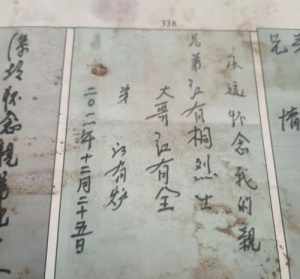 338
兄
情
永远怀念我的親
兄弟江有桐烈士
大哥江有全
弟 江有炉
二〇一一年十二月二十五日
怀念親